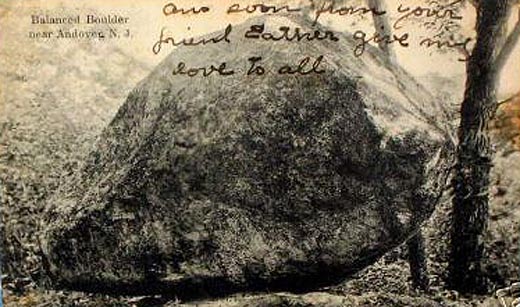 Balanced Boulder
near Andover, N. J.
ans soon even from your
friend Esther give my
love to all